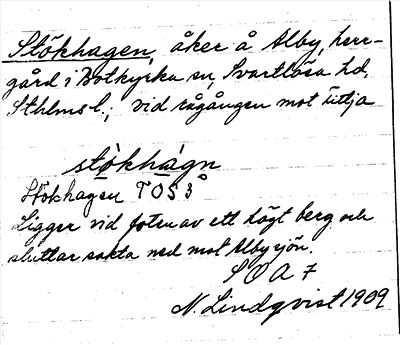 Stökhagen, åker å Alby, herr-
gård i Botkyrka sn, Svartlösa hd,
Sthlms l.; vid rågången mot Fittja
stökhagn
Stökhagen TOS 3
Ligger vid foten av ett högt berg och
sluttar sakta ned mot Albysjön.
SOA 7
N. Lindqvist 1909